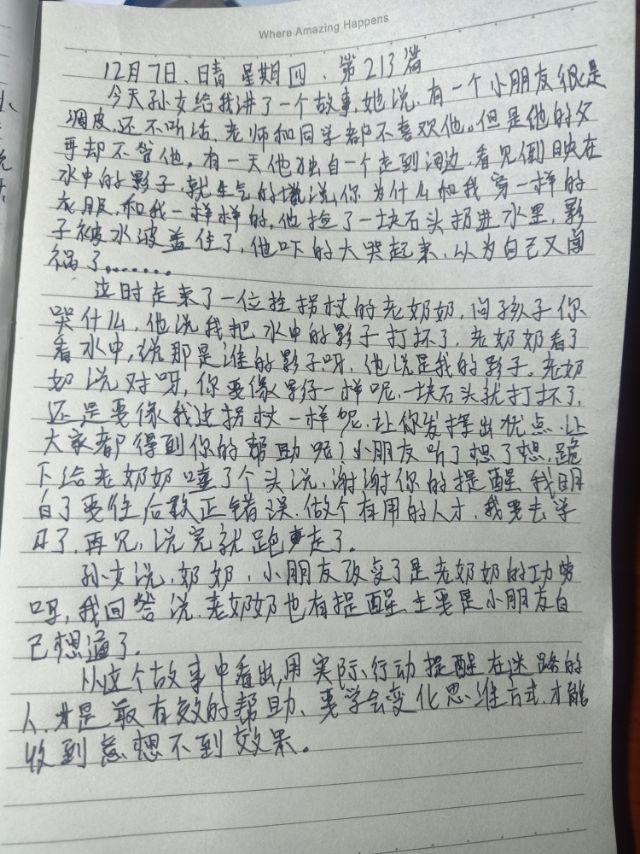 Where Amazing Happens
12月7日、晴 星期四、第213篇
今天孙女给我讲了一个故事，她说，有一个小朋友很是
调皮，还不听话，老师和同学都不喜欢他。但是他的父
母却不管他。有一天他独自一个走到河边，看见倒映在
水中的影子，就生气的说，你为什么和我穿一样的
衣服，和我一样样的，他捡了一块石头扔进水里，影
子被水波盖住了，他吓的大哭起来，以为自己又闯
祸了.......
这时走来了一位拄拐杖的老奶奶，问孩子你
哭什么，他说我把水中的影子打坏了，老奶奶看了
看水中，说那是谁的影子呀，他说是我的影子，老奶
奶说对呀，你要像影子一样呢，一块石头就打坏了，
还是要像我这拐杖一样呢，让你发挥出优点，让
大家都得到你的帮助呢，小朋友听了想了想，跪
下给老奶奶嗑了个头说，谢谢你的提醒，我明
白了要往后改正错误，做个有用的人才，我要去学
习了，再见，说完就跑走了。
孙女说，奶奶，小朋友改变了是老奶奶的功劳
吗，我回答说，老奶奶也有提醒，主要是小朋友自
己想通了.
从这个故事中看出，用实际行动提醒在迷路的
人，才是最有效的帮助、要学会变化思维方式，才能
收到意想不到效果。